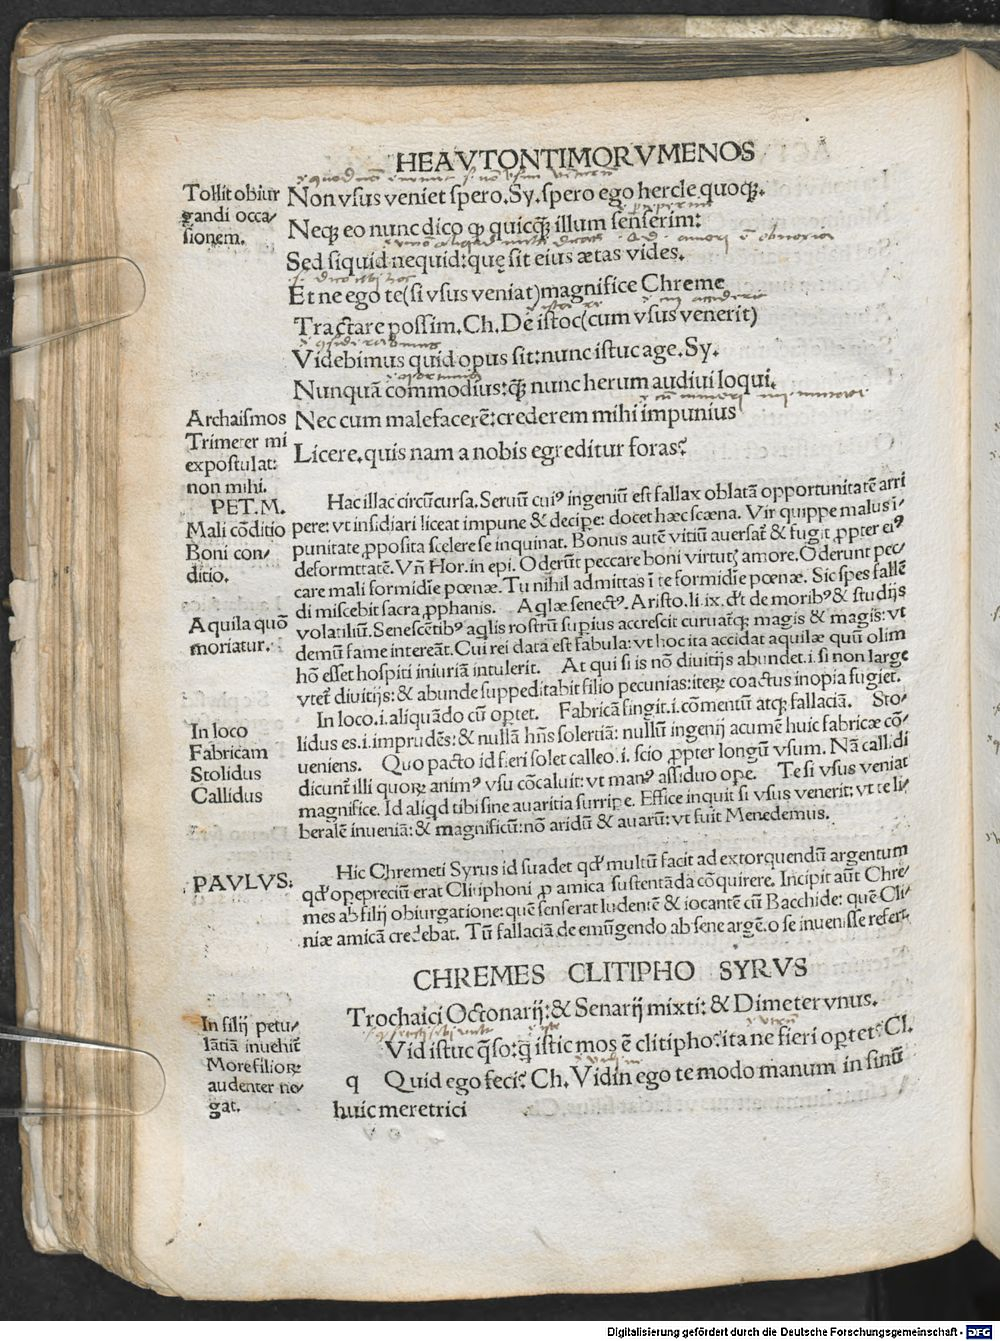 HEAVTONTIMORVMENOS
Tollit obiur
gandi occa/
sionem.
Non vsus veniet spero. Sy. spero ego hercle quoqꝫ.
Neqꝫ eo nunc dico ꝙ quicqꝫ illum senserim:
Sed siquid nequid: quę sit eius ætas vides.
Et ne ego te (si vsus veniat) magnifice Chreme
Tractare possim. Ch. De istoc (cum vsus venerit)
Videbimus quid opus sit: nunc istuc age. Sy.
Nunquā commodius: qꝫ nunc herum audiui loqui.
Archaismos
Trimeter mi
expostulat:
non mihi.
Nec cum malefacerē: crederem mihi impunius
Licere. quis nam a nobis egreditur foras?
PET. M.
Mali cōditio
Boni con/
ditio.
Hac illac circūcursa. Seruū cuiꝰ ingeniū est fallax oblatā opportunitatē arri
pere: vt insidiari liceat impune & decipe: docet hæc scæna. Vir quippe malus ī/
punitate ꝓposita scelere se inquinat. Bonus autē vitiū auersat̄ & fugit ꝓpter eiꝰ
deformitatē. Vn̄ Hor. in epi. Oderūt peccare boni virtutꝭ amore. Oderunt pec/
care mali formidīe pœnæ. Tu nihil admittas ī te formidīe pœnæ. Sic spes fallē
di miscebit sacra ꝓphanis. Aqlæ senectꝰ. Aristo. li. ix. d't de moribꝰ & studijs
Aquila quō
moriatur.
volatiliū. Senescētibꝰ aqlis rostrū supius accrescit curuat̄qꝫ magis & magis: vt
demū fame intereāt. Cui rei data est fabula: vt hoc ita accidat aquilæ quū olim
hō esset hospiti iniuriā intulerit. At qui si is nō diuitijs abundet. i. si non large
vtet̄ diuitijs: & abunde suppeditabit filio pecunias: iterꝫ coactus inopia fugiet.
In loco
Fabricam
Stolidus
Callidus
In loco. i. aliquādo cū oportet. Fabricā fingit. i. cōmentū atqꝫ fallaciā. Sto/
lidus es. i. imprudēs: & nullā hn̄s solertiā: nullū ingenij acumē huic fabricæ cō/
ueniens. Quo pacto id fieri solet calleo. i. scio ꝓpter longū vsum. Nā callidi
dicunt̄ illi quorꝫ animꝰ vsu cōcaluit: vt manꝰ assiduo ope. Te si vsus veniat
magnifice. Id aliqd tibi sine auaritia surripe. Effice inquit si vsus venerit: vt te li/
beralē inueniā: & magnificū: nō aridū & auarū: vt fuit Menedemus.
PAVLVS:
Hic Chremeti Syrus id suadet qd' multū facit ad extorquendū argentum
qd' opepreciū erat Clitiphoni ꝓ amica sustentāda cōquirere. Incipit aūt Chre/
mes ab filij obiurgatione: quē senserat ludentē & iocantē cū Bacchide: quē Cli/
niæ amicā credebat. Tū fallaciā de emūgendo ab sene argēto se inuenisse refert.
CHREMES CLITIPHO SYRVS
Trochaici Octonarij: & Senarij mixti: & Dimeter vnus.
In filij petu/
lātiā inuehit̄
More filiorꝫ
audenter ne/
gat.
Vid istuc qso: q̄ istic mos ē clitipho? ita ne fieri optet? Cl.
q Quid ego feci? Ch. Vidin ego te modo manum in sinū
huic meretrici
Digitalisierung gefördert durch die Deutsche Forschungsgemeinschaft - DFG